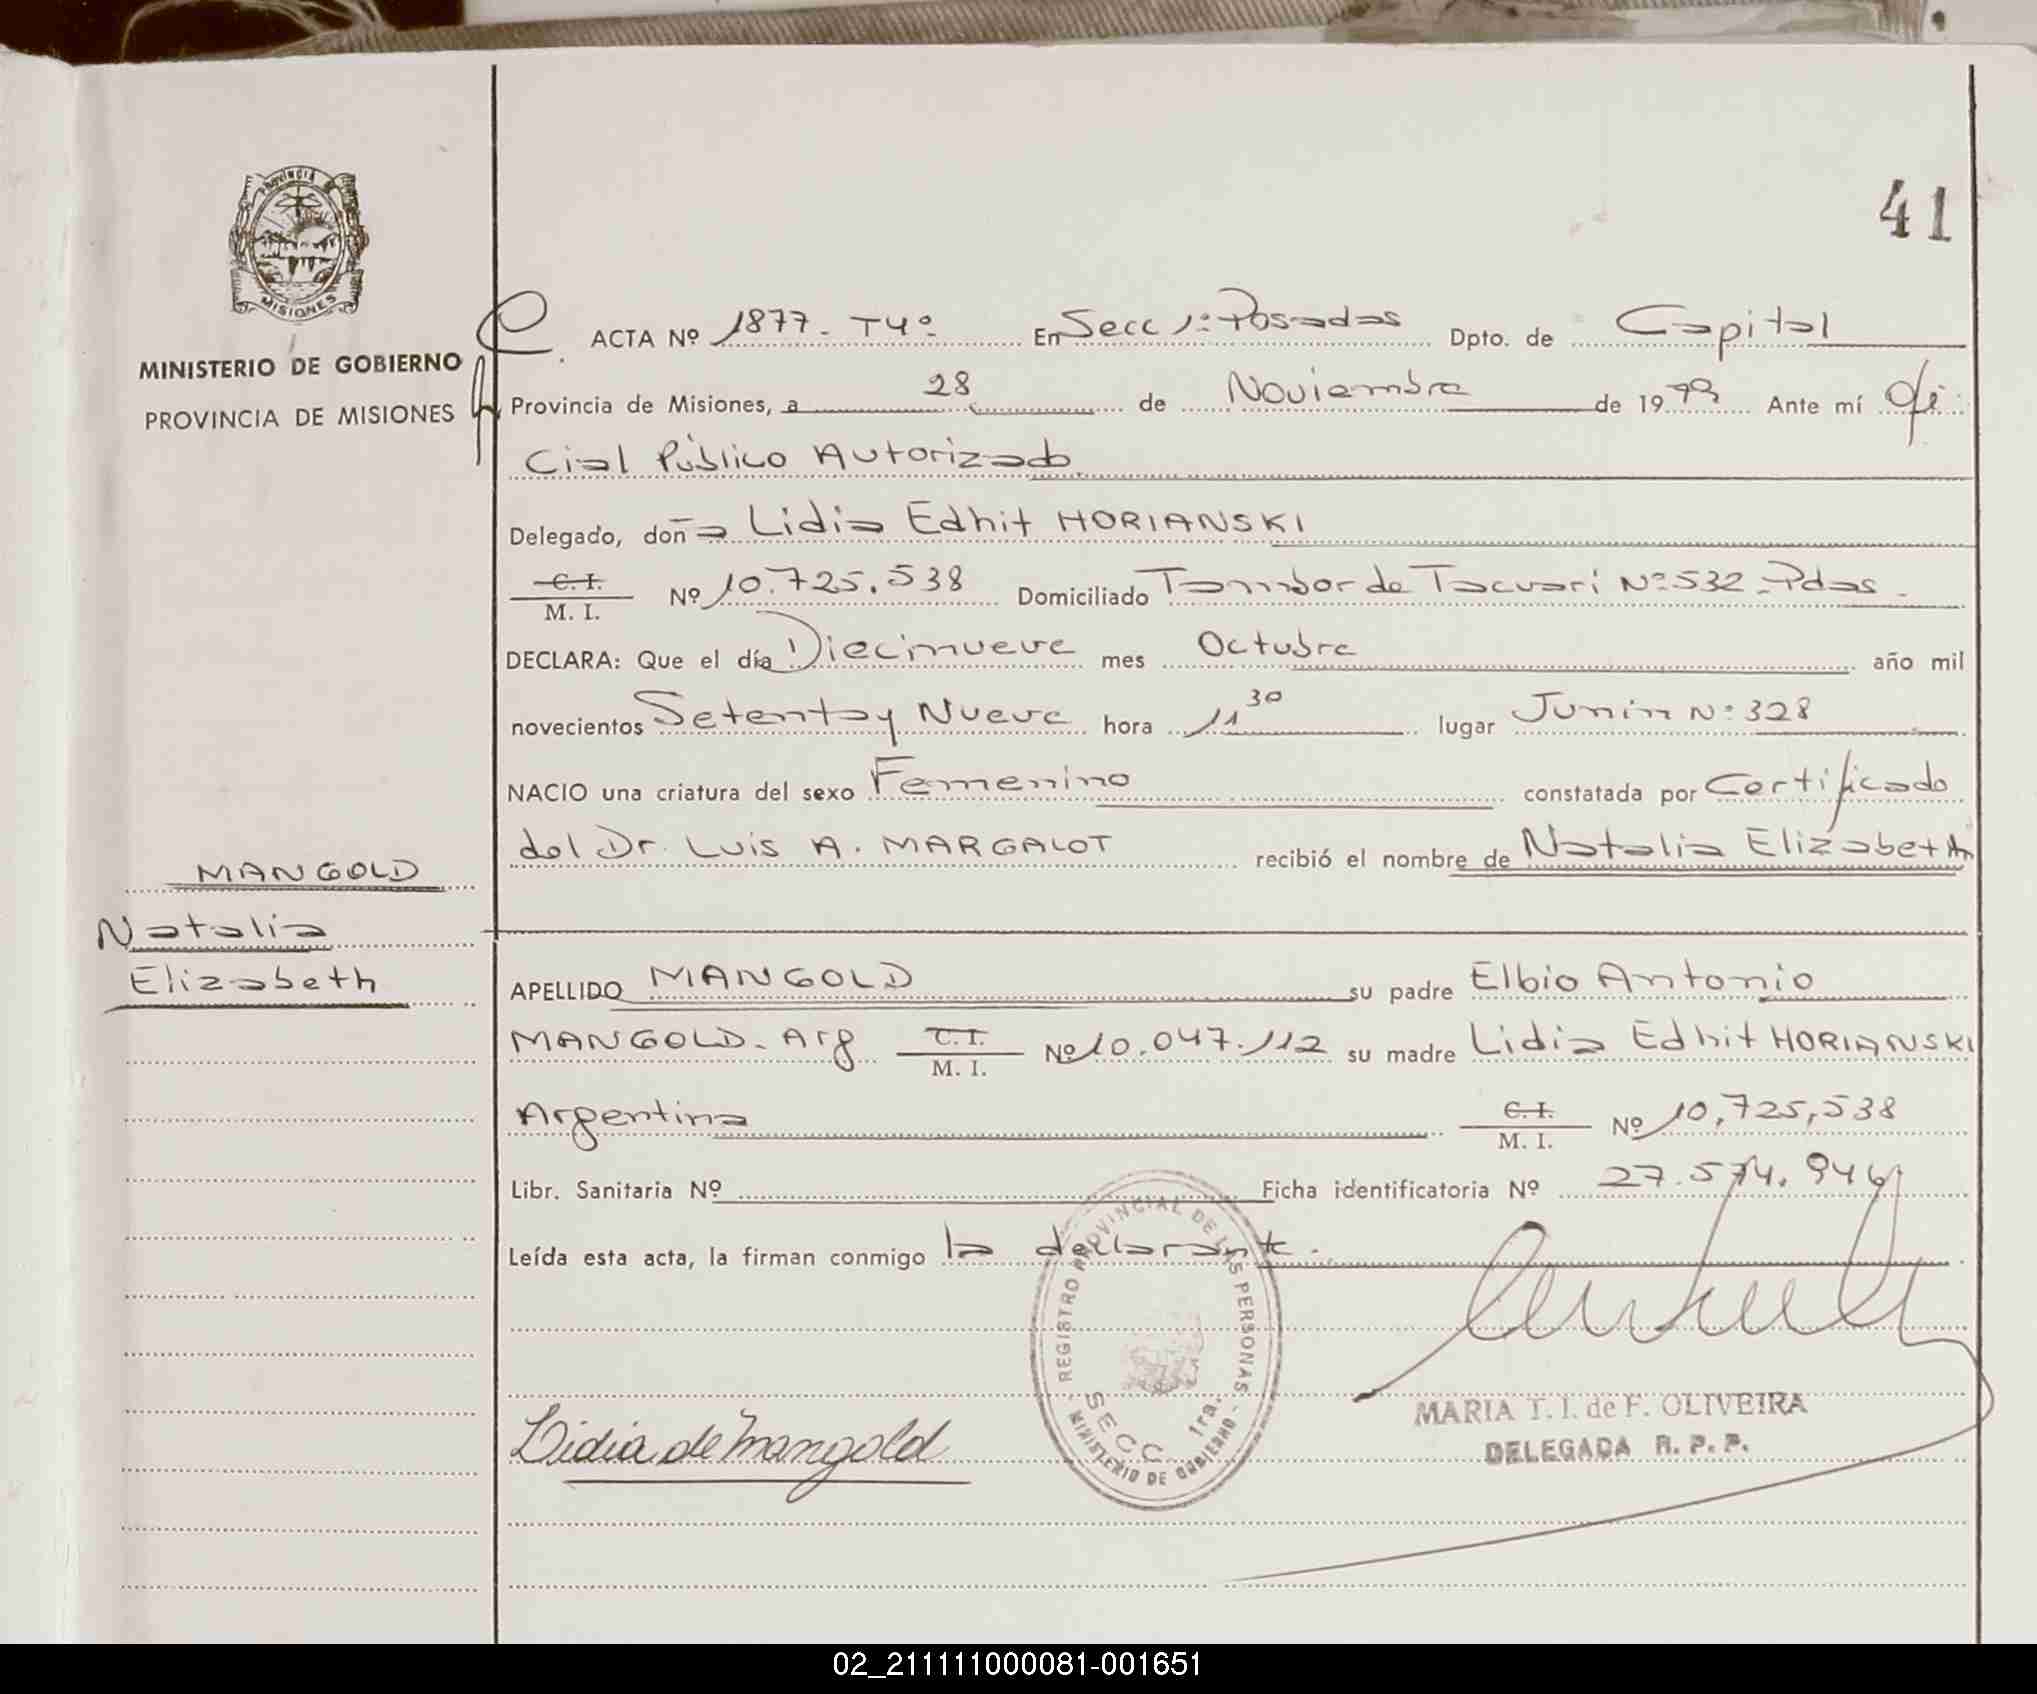 41
PROVINCIA DE
MISIONES
MINISTERIO DE GOBIERNO
PROVINCIA DE MISIONES
ACTA Nº 1877 - T4º En Secc 1ª Posadas Dpto. de Capital
Provincia de Misiones, a 28 de Noviembre de 1979 Ante mí Ofi
cial Público Autorizado
Delegado, doña Lidia Edhit HORIANSKI
C. I.
M. I. Nº 10.725.538 Domiciliado Tambor de Tacuari Nº 532 - Pdas -
DECLARA: Que el día Diecinueve mes Octubre año mil
novecientos Setenta y Nueve hora 11 30 lugar Junin Nº 328
NACIO una criatura del sexo Femenino constatada por Certificado
del Dr. Luis A. MARGALOT recibió el nombre de Natalia Elizabeth
MANGOLD
Natalia
Elizabeth
APELLIDO MANGOLD su padre Elbio Antonio
MANGOLD - Arg C. I.
M. I. Nº 10.047.112 su madre Lidia Edhit HORIANSKI
Argentina C. I.
M. I. Nº 10,725,538
Libr. Sanitaria Nº Ficha identificatoria Nº 27.574.946
Leída esta acta, la firman conmigo la declarante.
REGISTRO PROVINCIAL DE LAS PERSONAS
SECC. 1ra.
- MINISTERIO DE GOBIERNO -
Lidia de Mangold
MARIA T. I. de F. OLIVEIRA
DELEGADA R. P. P.
02_211111000081-001651